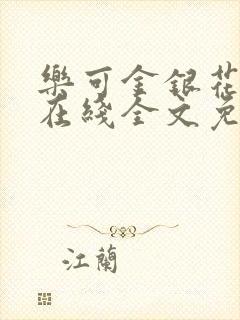 樂可金銀花
在綫全文免
江蘭